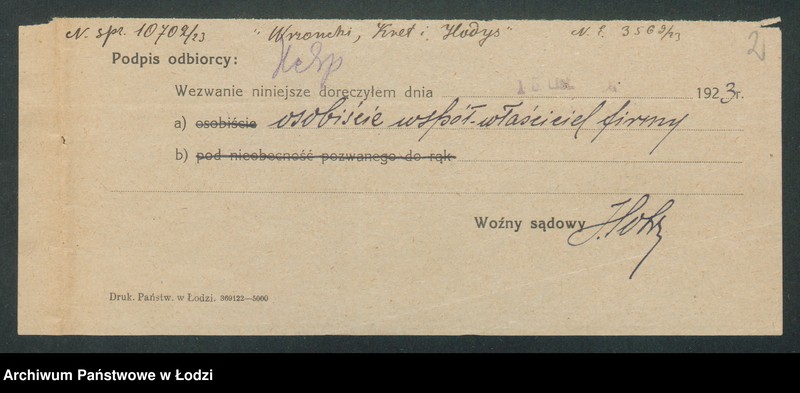 N. spr. 10702/23 "Wronchi, Kret i Hodys" N. f. 3569/23
2
Podpis odbiorcy:
Wezwanie niniejsze doręczyłem dnia 15 LIS. 1923r.
a) osobiście osobiście współ-właściciel firmy
b) pod nieobecność pozwanego do rąk
Woźny sądowy
Druk. Państw. w Łodzi. 369123—5000
Archiwum Państwowe w Łodzi